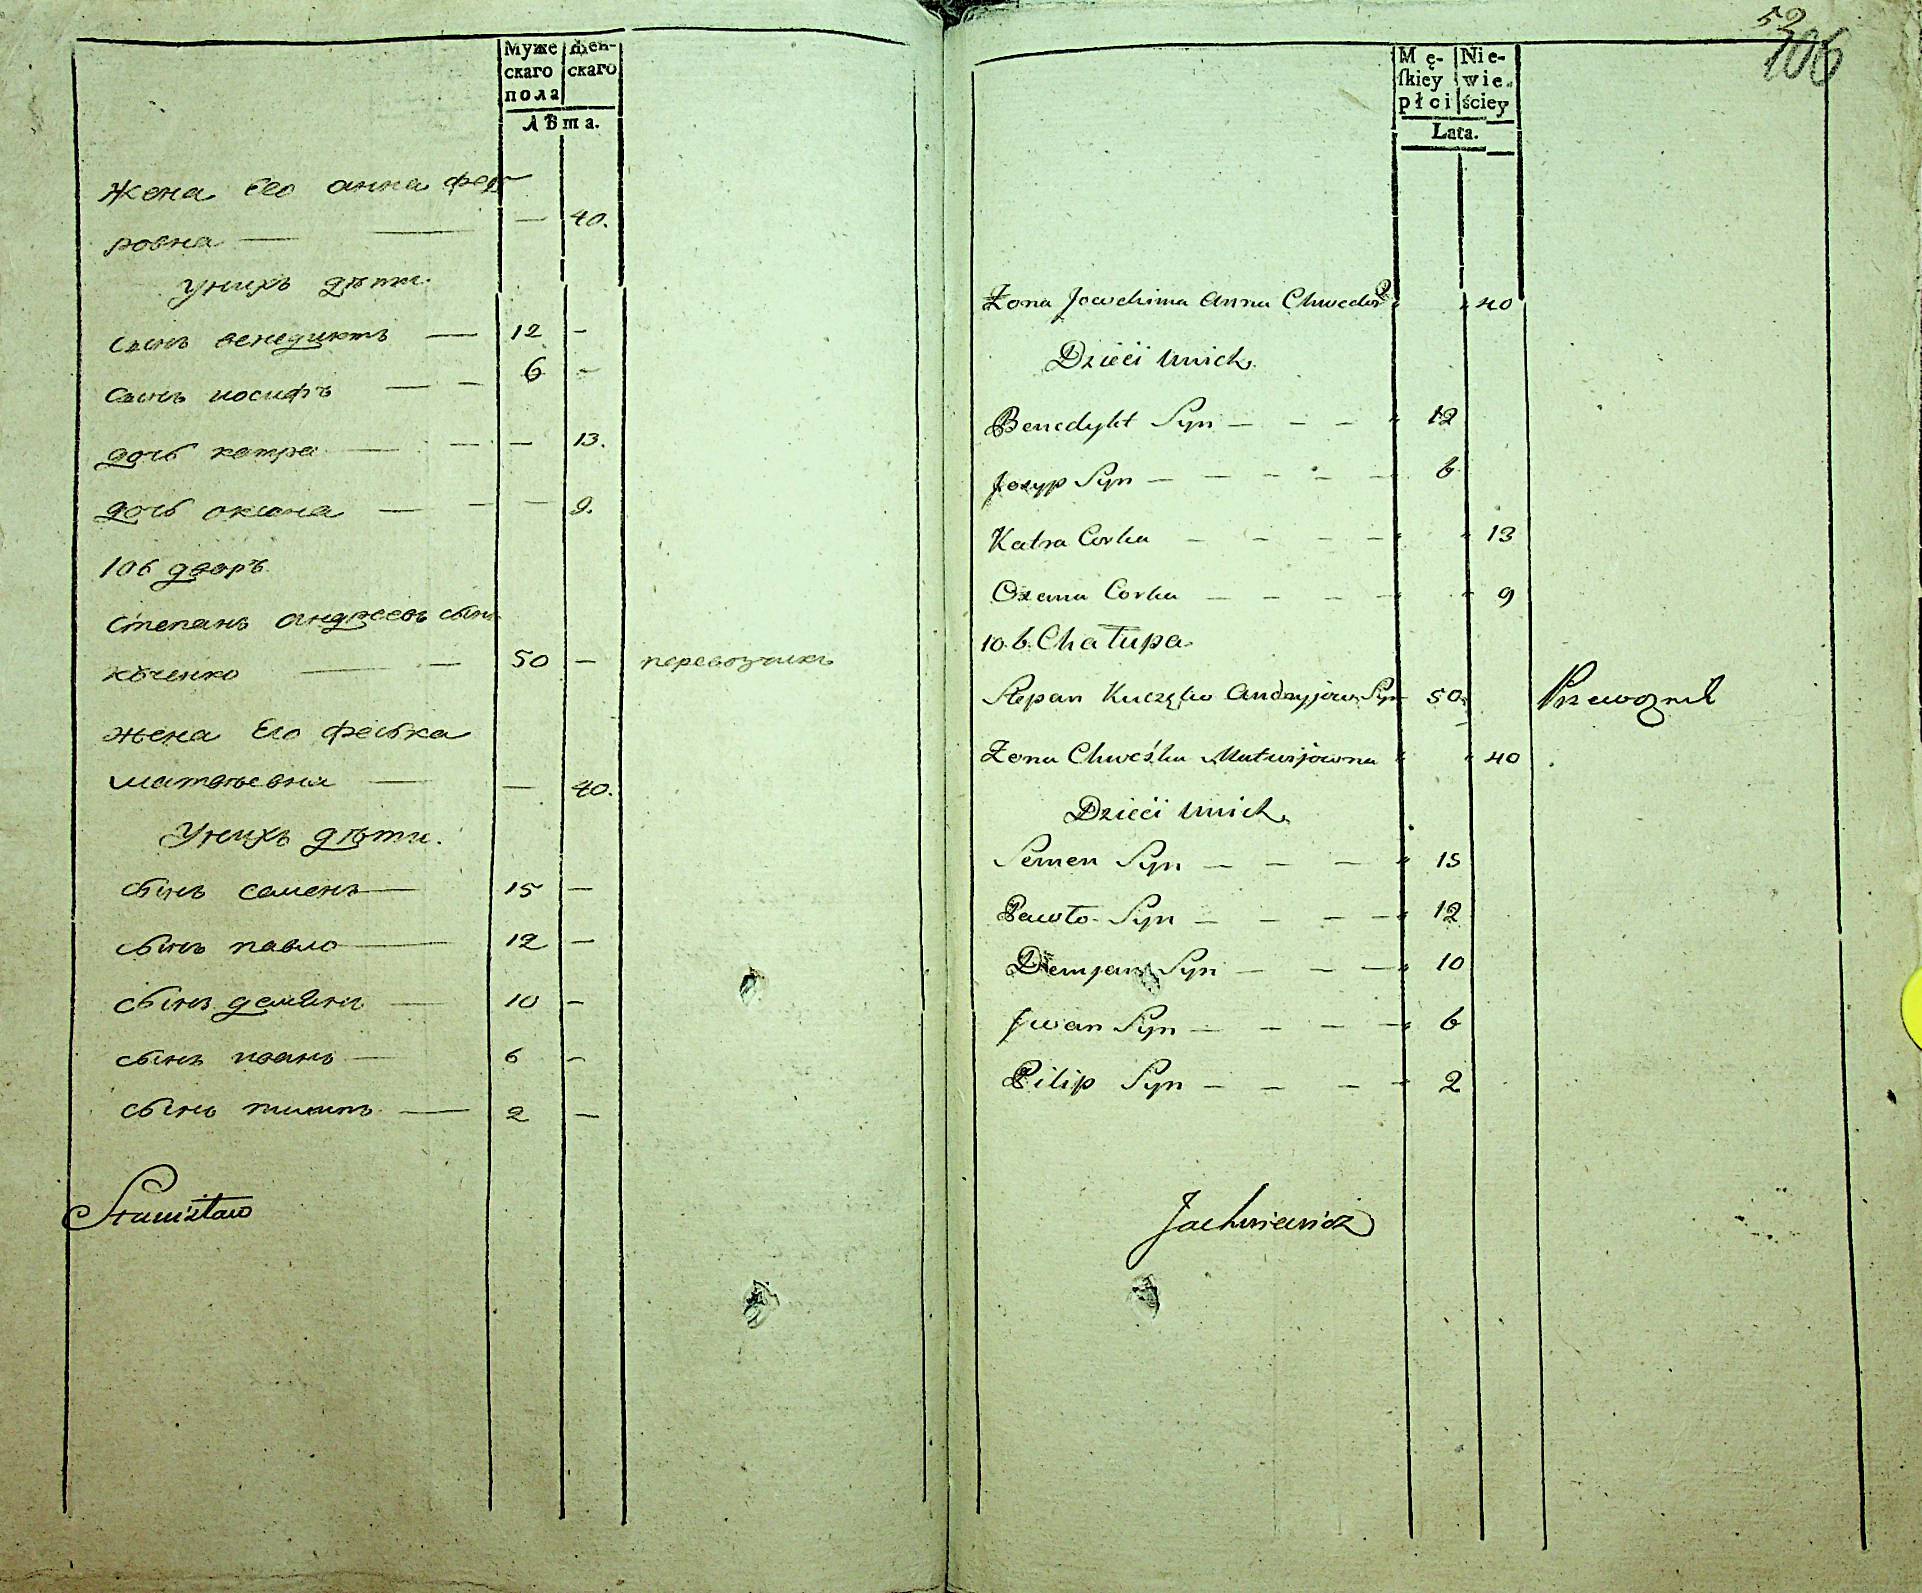 Муже
скаго
пола
Жен-
скаго
лѣта.
жена его анна фед
ровна — — — 40.
унихъ дѣти.
сынъ венедиктъ — 12 –
сынъ иосифъ — – 6 –
дочь катра — — — 13.
дочь оксана — – — 9.
106 дворъ
степанъ андреевъ сынъ
кученко — — 50 – перевозчикъ
жена Его феська
матвѣевна — — 40.
Унихъ дѣти.
сынъ семенъ — 15 —
сынъ павло — 12 —
сынъ демянъ — 10 –
сынъ иванъ — 6 –
сынъ пилипъ — 2 —
Stanisław
52
106
Mę-
ſkiey
płci
Nie-
wie-
ściey
Lata.
Żona Joachima Anna Chwedor " " 40
Dzieci unich
Benedykt Syn — – – – " 12
Jozyp Syn — – – – – 6
Katra Corka – – – – " " 13
Oxana Corka – – – – " 9
106. Chałupa
Stepan Kuczęko Andryjow Syn 50 Przewoznik
Żona Chweśka Matwijowna " " 40
Dzieci unich
Semen Syn — – — " 15
Pawło Syn — – – — " 12
Demjan Syn — – — " 10
Jwan Syn — – – — " 6
Pilip Syn – – – – 2
Jachniewicz